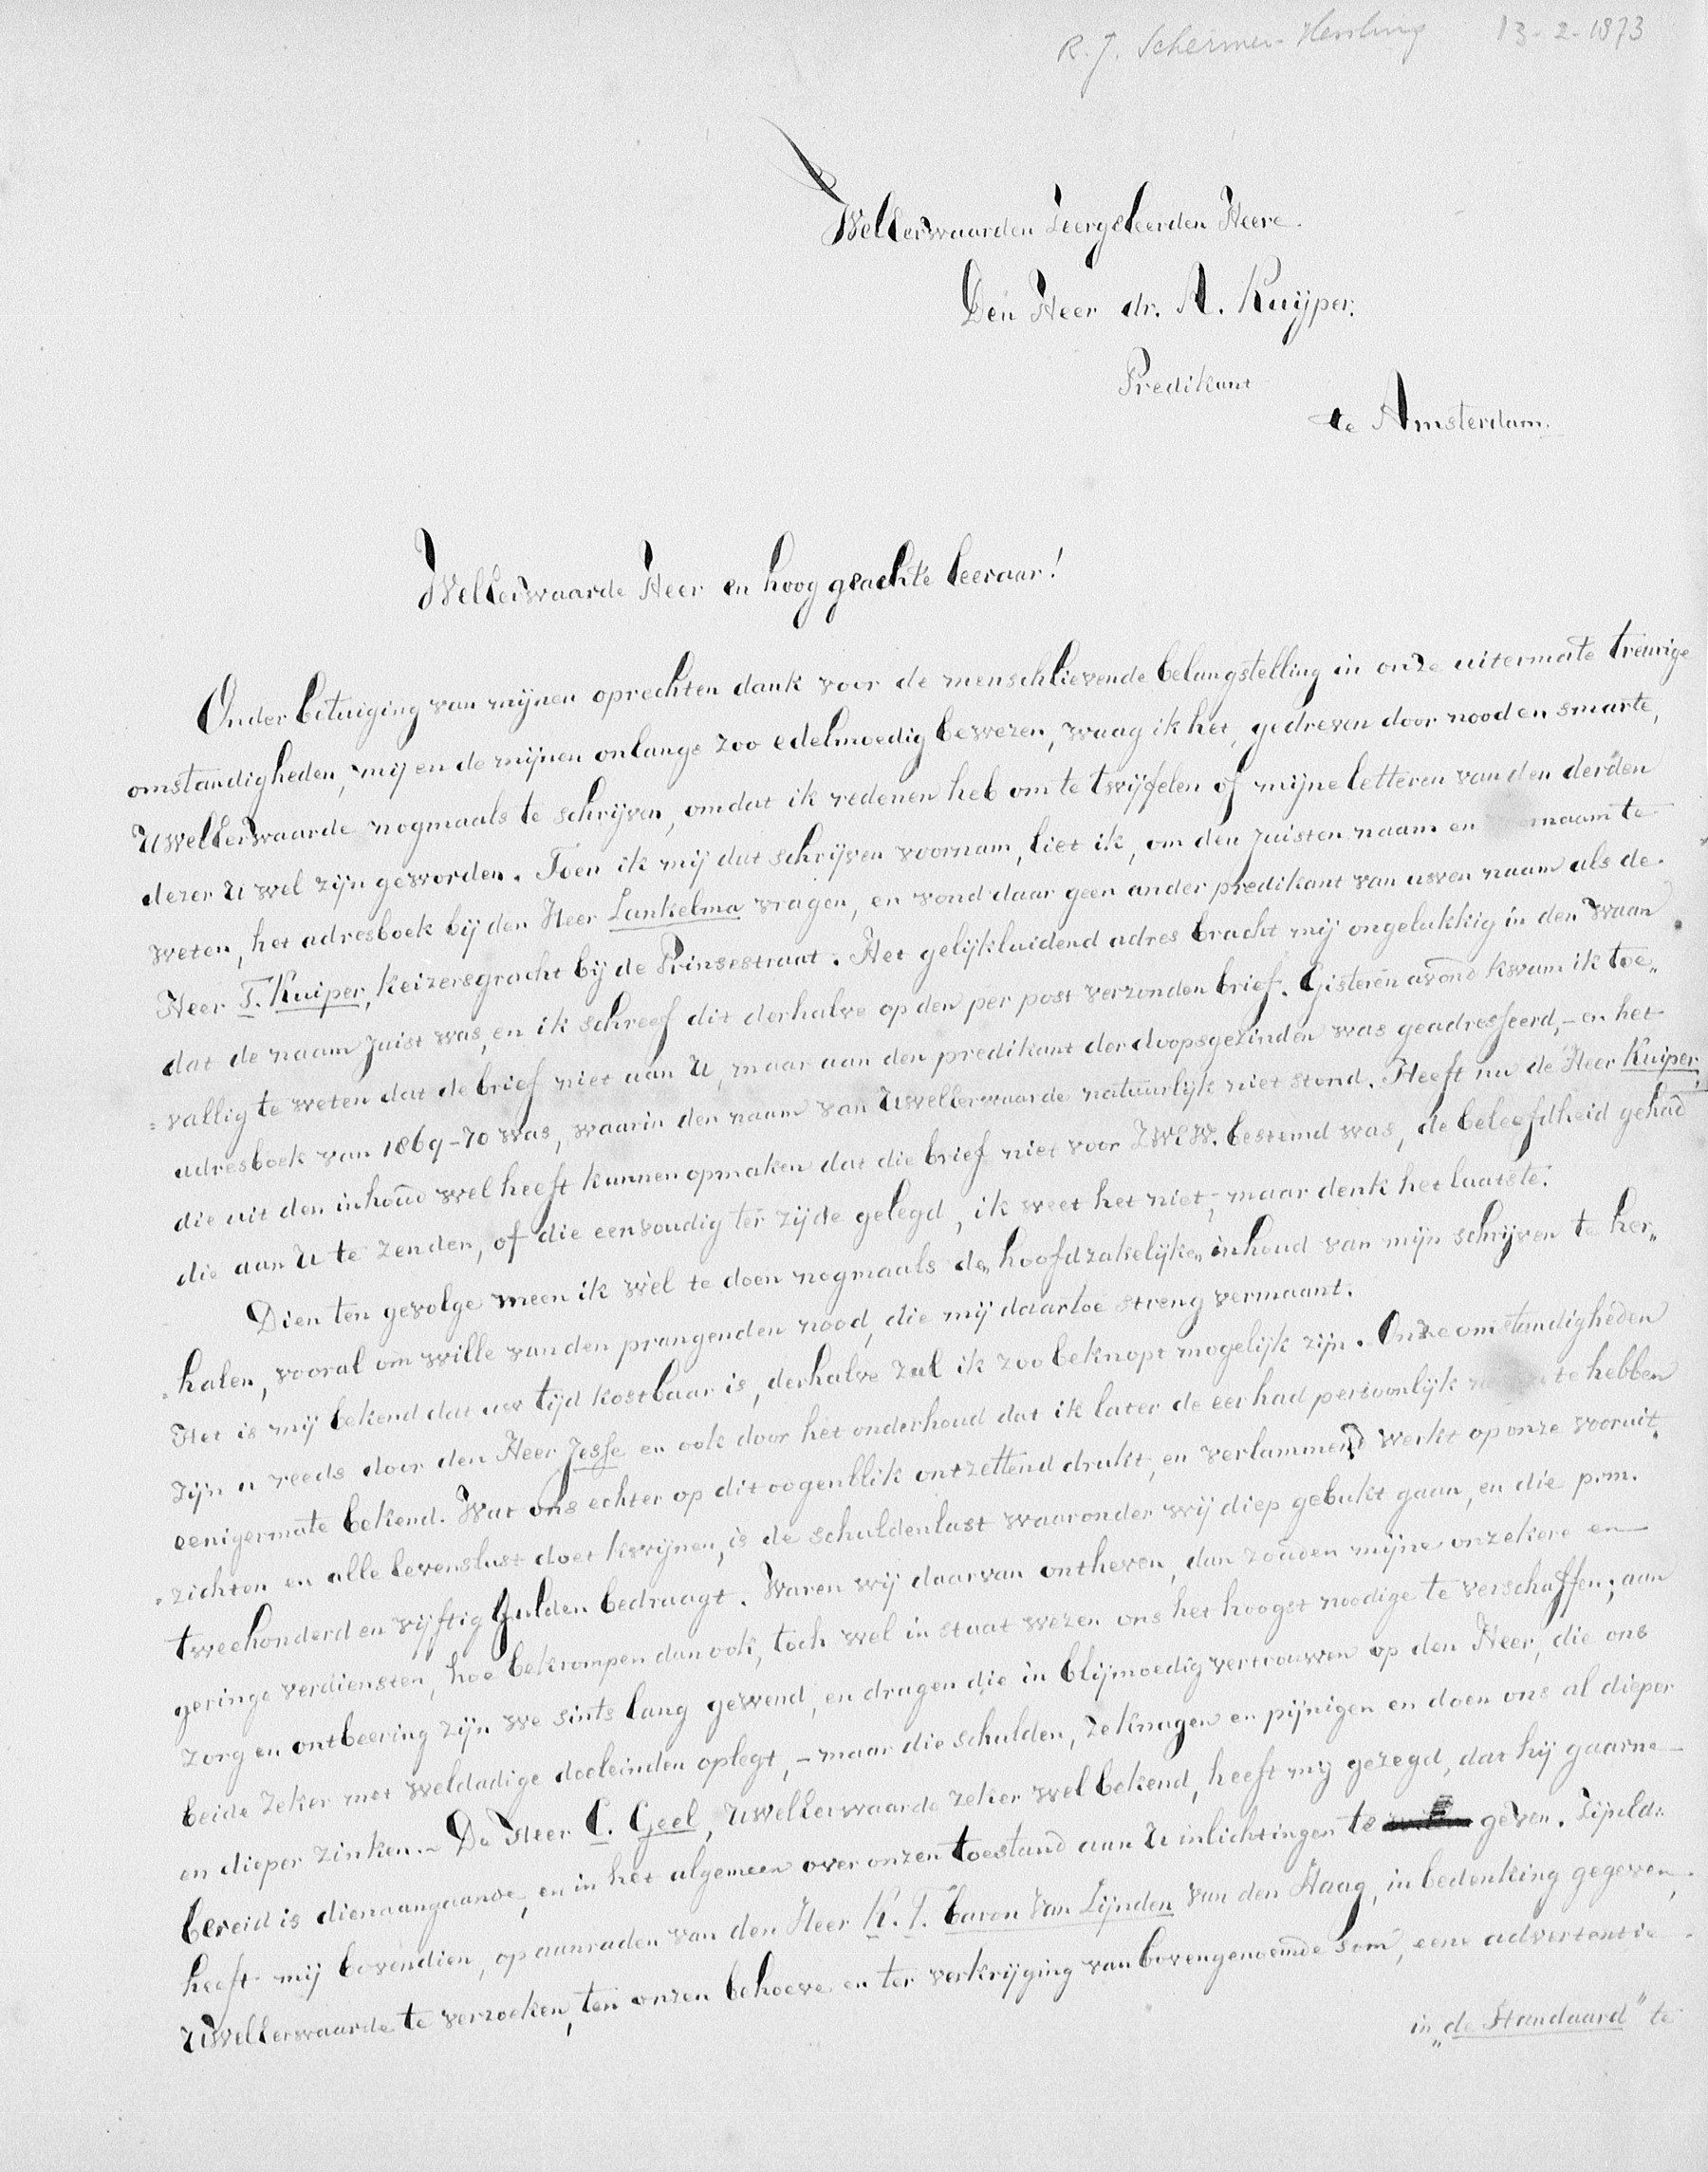 R. J. Schermer-Hessling 13-2-1873
WelEerwaarden Zeergeleerden Heere.
Den Heer dr. A. Kuijper.
Predikant
te Amsterdam.
WelEerwaarde Heer en hoog geachte leeraar!
Onder betuiging van mijnen oprechten dank voor de menschlievende belangstelling in onze uitermate treurige
omstandigheden, mij en de mijnen onlangs zoo edelmoedig bewezen, waag ik het, gedreven door nood en smarte,
UwelEerwaarde nogmaals te schrijven, omdat ik redenen heb om te twijfelen of mijne letteren van den derden
dezer U wel zijn geworden. Toen ik mij dat schrijven voornam, liet ik, om den juisten naam en naam te
weten, het adresboek bij den Heer Lankelma vragen, en vond daar geen ander predikant van uwen naam als de
Heer T. Kuiper, Keizersgracht bij de Prinsestraat. Het gelijkluidend adres bracht mij ongelukkig in den waan
dat de naam juist was, en ik schreef dit derhalve op den per post verzonden brief. Gisteren avond kwam ik toe„
„vallig te weten dat de brief niet aan U, maar aan den predikant der doopsgezinden was geadresseerd, – en het
adresboek van 1869-70 was, waarin den naam van UwelEerwaarde natuurlijk niet stond. Heeft nu de Heer Kuiper,
die uit den inhoud wel heeft kunnen opmaken dat die brief niet voor ZWEW. bestemd was, de beleefdheid gehad
die aan U te zenden, of die eenvoudig ter zijde gelegd, ik weet het niet; maar denk het laatste.
Dien ten gevolge meen ik wel te doen nogmaals den hoofdzakelijken inhoud van mijn schrijven te her„
„halen, vooral om wille van den prangenden nood, die mij daartoe streng vermaant.
Het is mij bekend dat uw tijd kostbaar is, derhalve zal ik zoo beknopt mogelijk zijn. Onze omstandigheden
zijn u reeds door den Heer Jesse en ook door het onderhoud dat ik later de eer had persoonlijk te hebben
eenigermate bekend. Wat ons echter op dit oogenblik ontzettend drukt, en verlammend werkt op onze vooruit„
„zichten en alle levenslust doet kwijnen, is de schuldenlast waaronder wij diep gebukt gaan, en die p.m.
tweehonderd en vijftig Gulden bedraagt. Waren wij daarvan ontheven, dan zouden mijne onzekere en
geringe verdiensten, hoe bekrompen dan ook, toch wel in staat wezen ons het hoogst noodige te verschaffen; aan
zorg en ontbeering zijn we sints lang gewend, en dragen die in blijmoedig vertrouwen op den Heer, die ons
beide zeker met weldadige doeleinden oplegt, – maar die schulden, ze knagen en pijnigen en doen ons al dieper
en dieper zinken. – De Heer C. Geel, UwelEerwaarde zeker wel bekend, heeft mij gezegd, dat hij gaarne
bereid is dienaangaande, en in het algemeen over onzen toestand aan U inlichtingen te geven. ZijnEd:
heeft mij bovendien, op aanraden van den Heer K. T. baron Van Lijnden van den Haag, in bedenking gegeven,
UwelEerwaarde te verzoeken, ten onzen behoeve en ter verkrijging van bovengenoemde som, eene advertentie
in „de Standaard" te